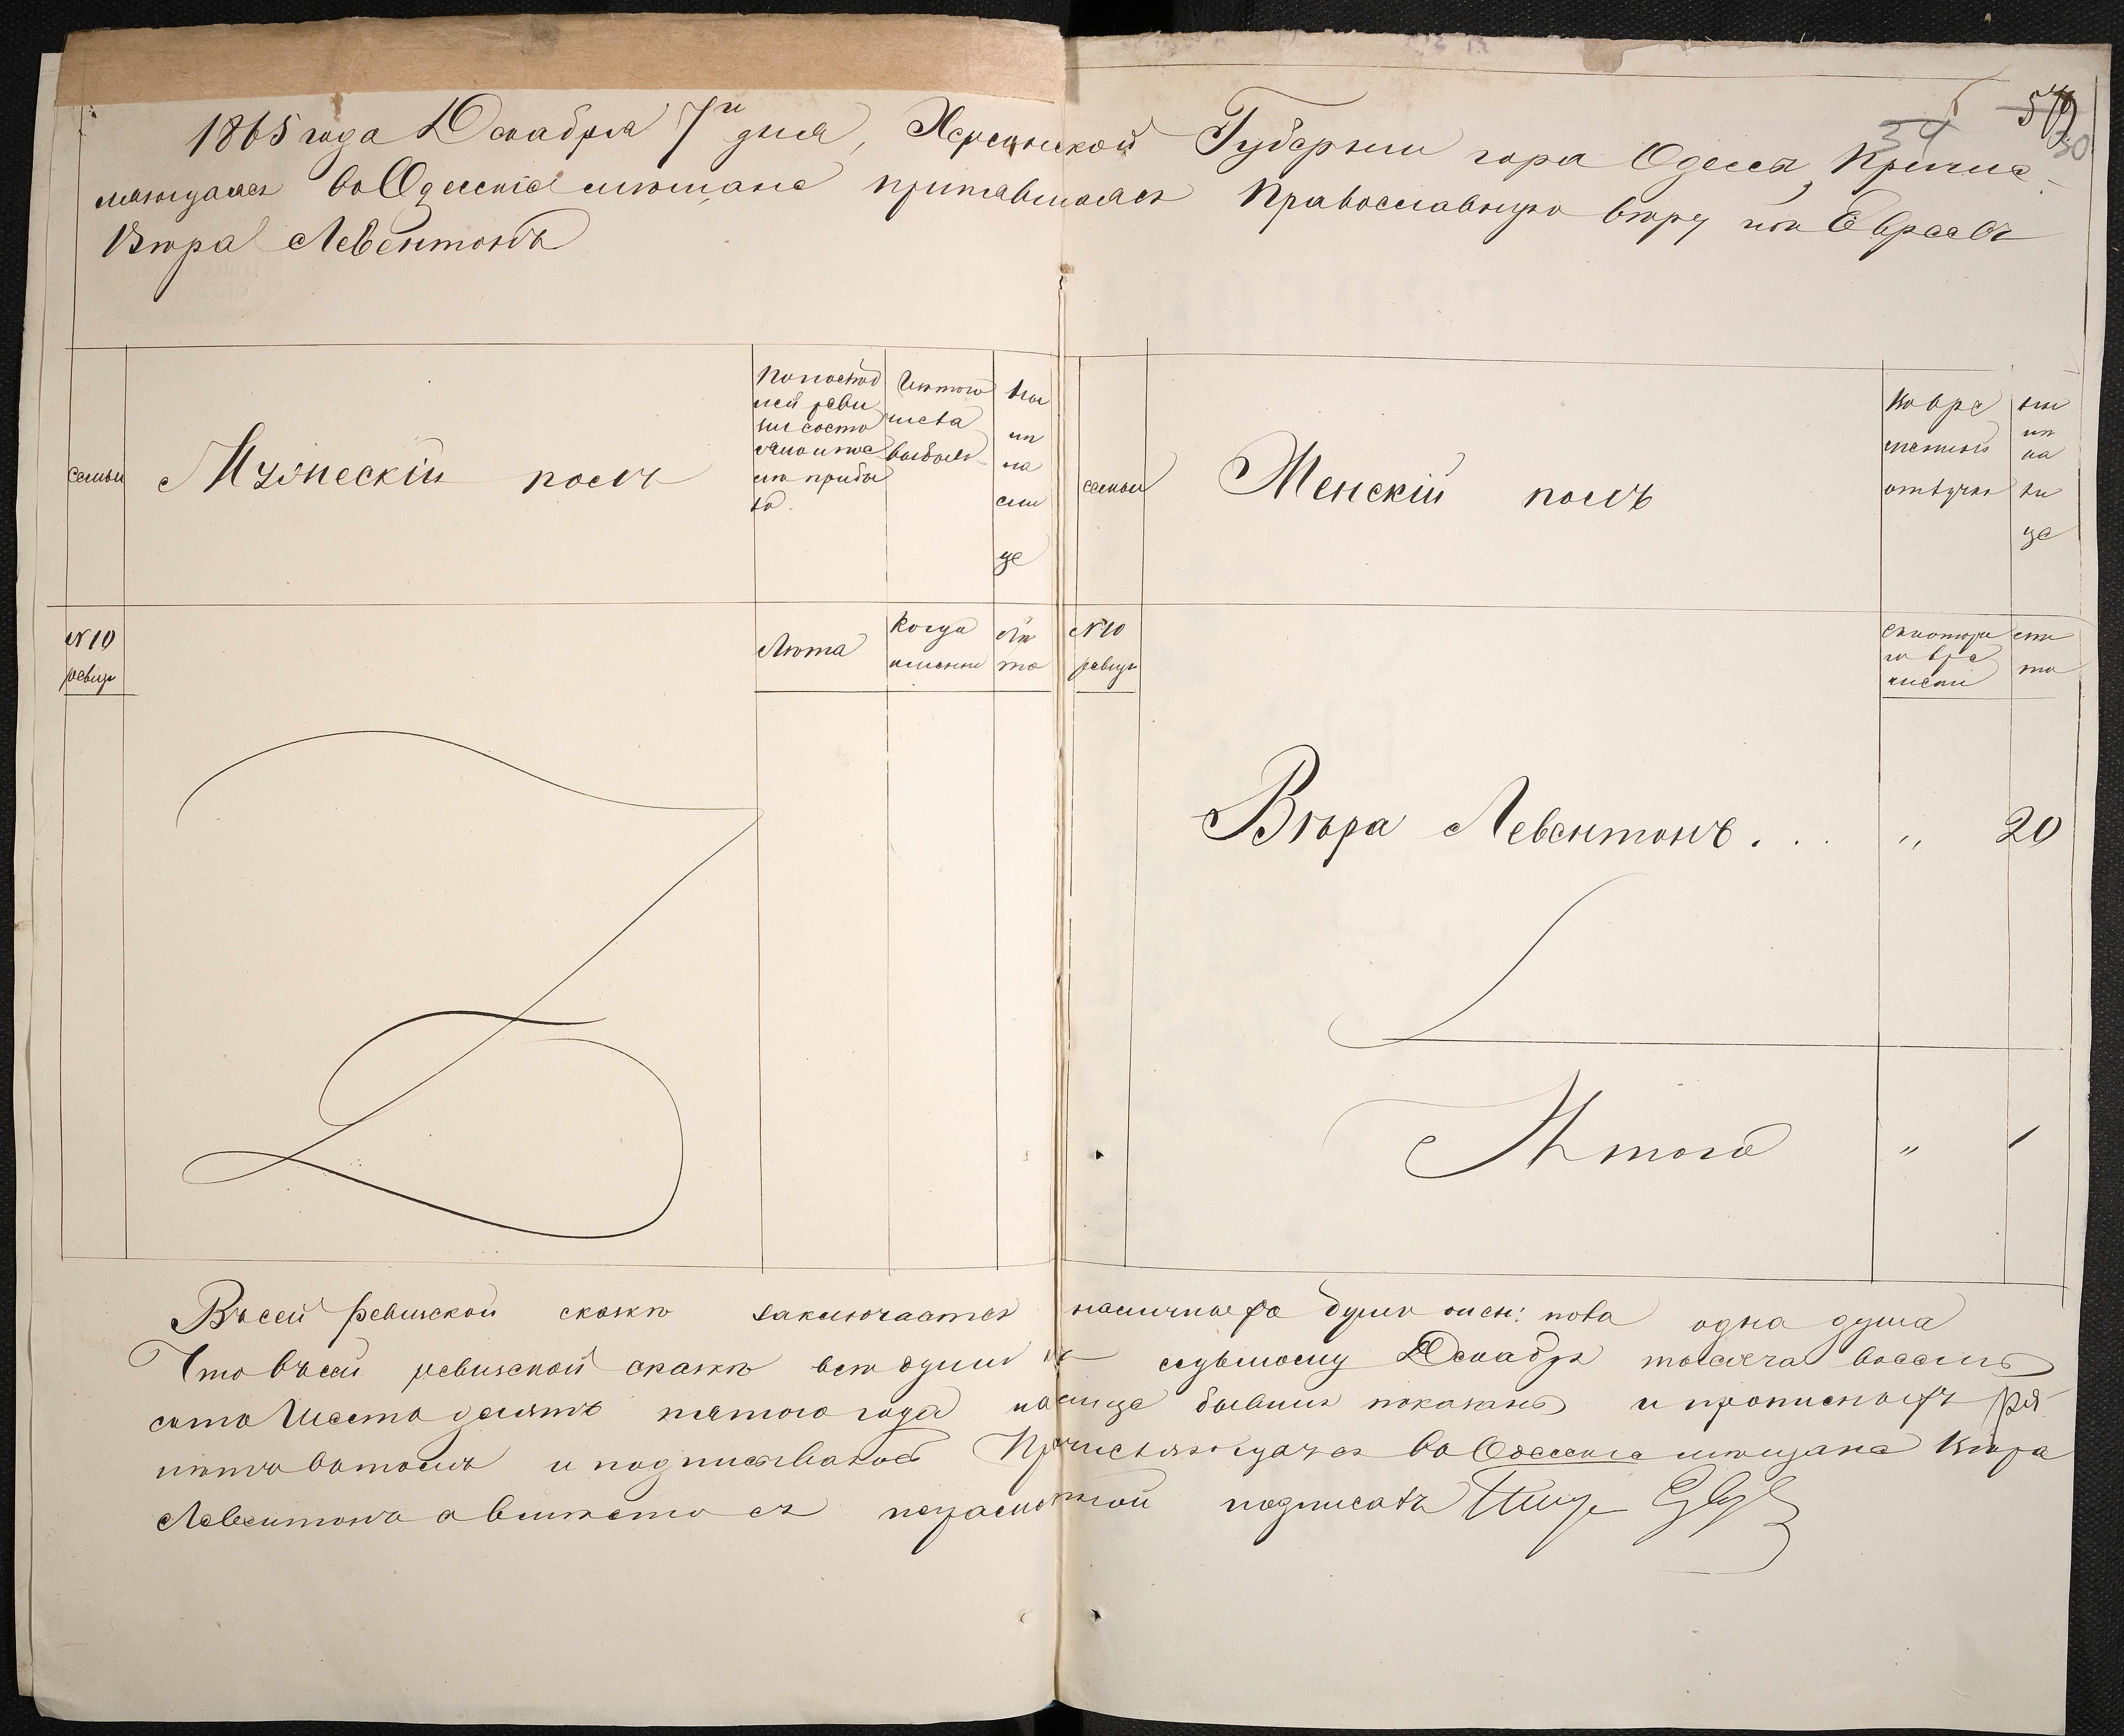 1865 года Декабря 7го дня, Херсонской Губернии горо Одесса, Причис-
ляющаяся во Одесскіе мещане принявшаяся Православную веру изъ Евреевъ
Вѣра Левентонъ
579
34
30
семьи
Мужескій полъ
По послед
ней реви
зіи состо
яло и после
ея прибы
ло.
Изъ того
числа
выбыло
Ны
нѣ
на
ли
це
семьи
Женскій полъ
Во вре
менной
отлучке
ны
нѣ
на
ли
це
№ 10
ревиз
Лѣта
Когда
именно
Лѣ
та
№ 10
ревиз
съ котора
го вре
мени
лѣ
та
Вѣра Левентонъ . . . " 20
Итого " 1
Въ сей ревизской сказкѣ заключается наличнаго душъ женс: пола одна душа
Что въ сей ревизской сказкѣ всѣ души къ седьмому Декабря тысяча восемь
сотъ шесто десятъ пятого года налице бывшія показаны и прописныхъ
нѣтъ въ томъ и подписываюсь Причисляющаяся во Одесскіе мещане Вѣра
Левентонъ а вместо ея неграмотной подписалъ